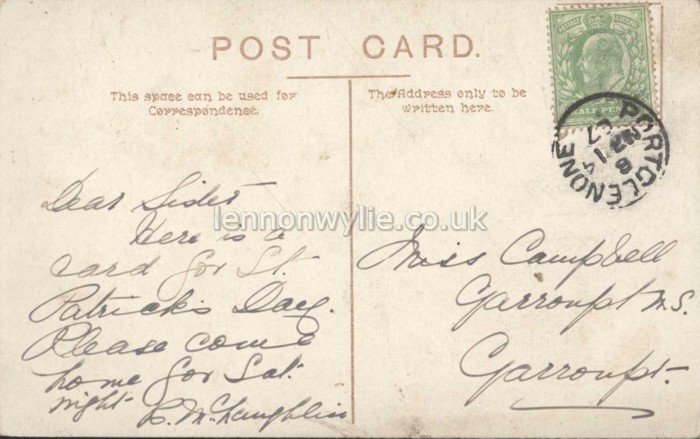 POST CARD.
This space can be used for
Correspondence.
The Address only to be
written here.
HALF PEN
PORTGLENONE
Dear Sister
Here is a
card for St.
Patrick's Day.
Please come
home for Sat.
night
McLaughlin
lennonwylie.co.uk
Miss Campbell
Garronpt M.S.
Garronpt.